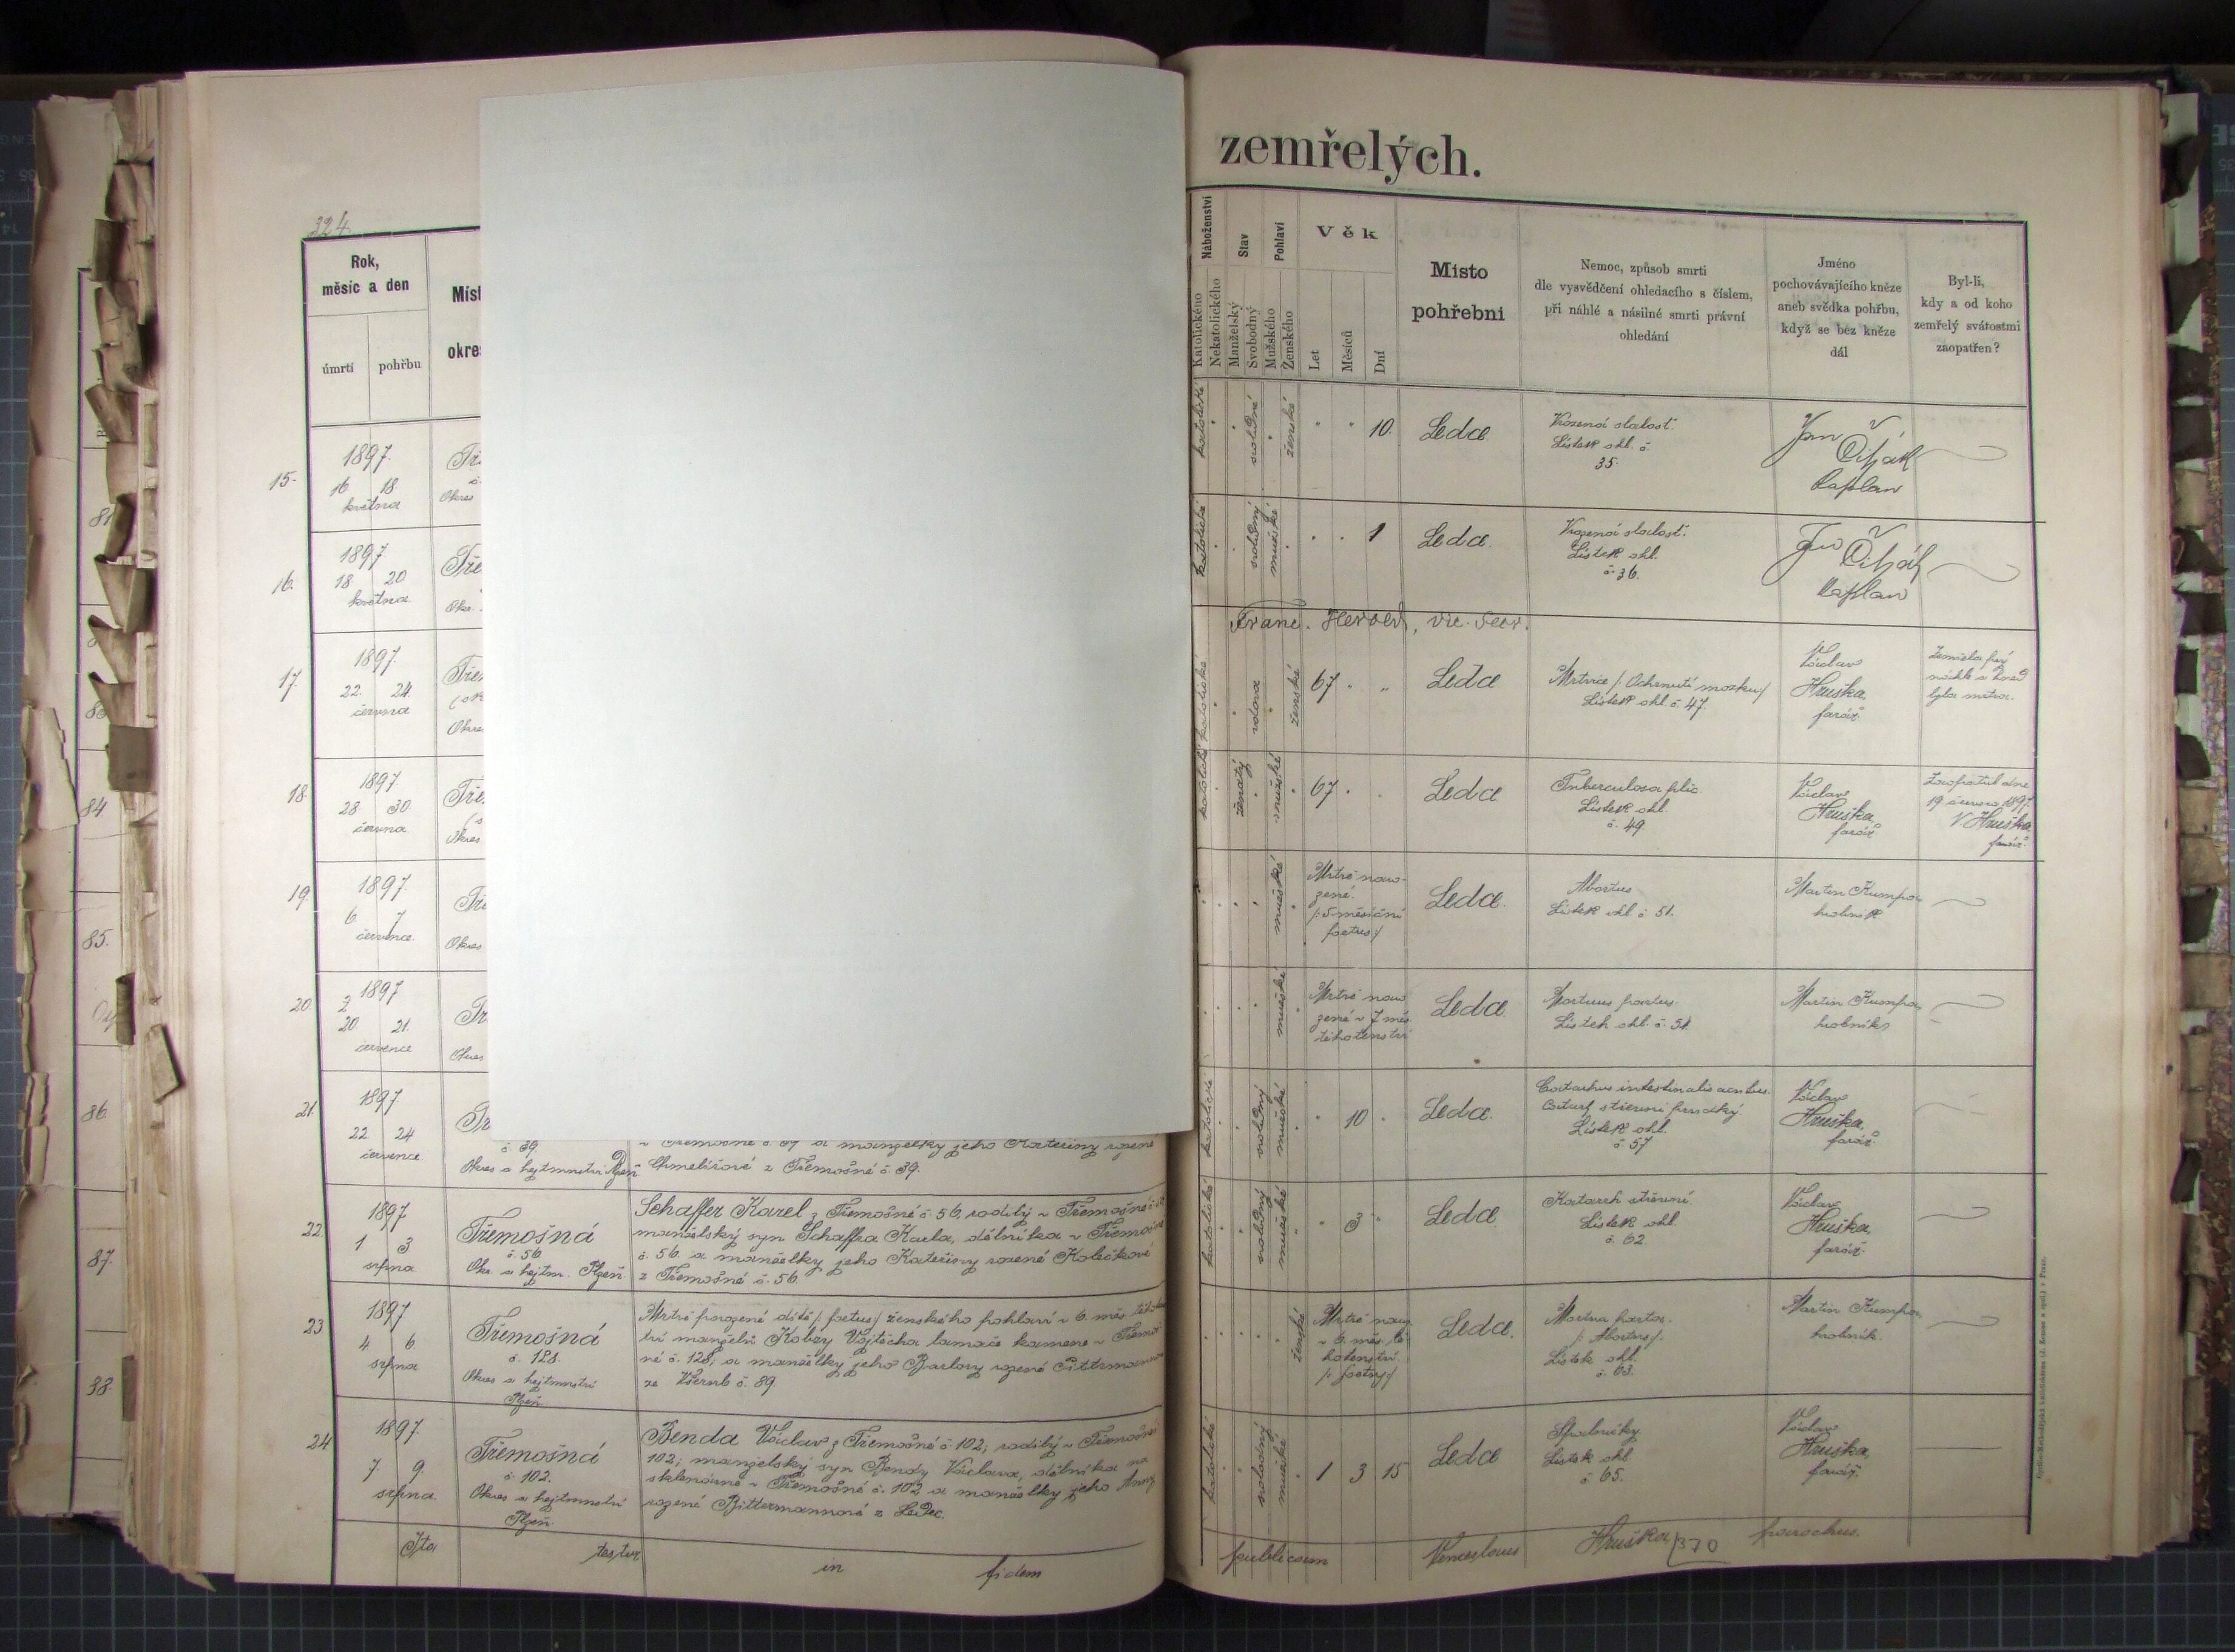 zemřelých.
324.
Rok,
měsíc a den
úmrtí
pohřbu
Míst
okres
Náboženství
Katolického
Nekatolického
Stav
Manželský
Svobodný
Pohlaví
Mužského
Ženského
Věk
Let
Měsíců
Dní
Místo
pohřební
Nemoc, způsob smrti
dle vysvědčení ohledacího s číslem,
při náhlé a násilné smrti právní
ohledání
Jméno
pochovávajícího kněze
aneb svědka pohřbu,
když se bez kněze
dál
Byl-li,
kdy a od koho
zemřelý svátostmi
zaopatřen?
15.
1897.
16. 18.
května
Okres
katolické
svobodné
ženské
10.
Ledce
Vrozená slabost.
Lístek ohl. č.
35.
Jan
Čihák
kaplan
16.
1897
18 20
května.
Okr.
katolické
svobodný
mužské
1
Ledce.
Vrozená slabost.
Lístek ohl.
č. 36.
Čihák
kaplan
Franc. Herold, vic. secr.
17.
1897.
22. 24.
června
Okres
katolické
vdova
ženské
67
Ledce
Mrtvice /: Ochrnutí mozku/
Lístek ohl. č. 47.
Václav
Hruška,
farář.
Zemřela prý
náhle a hned
byla mrtva.
18.
1897.
28. 30.
června
Okres
katolické
ženatý
mužské
67
Ledce
Tuberculosa plic
Lístek ohl.
č. 49.
Václav
Hruška,
farář.
Zaopatřil dne
19. června 1897.
V. Hruška
farář.
19.
1897.
6. 7.
července
Okres
mužské
Mrtvě naro-
zené.
/: 5 měsíční
foetus:/
Ledce.
Abortus
Lístek ohl. č. 51.
Martin Kumpa,
hrobník
20.
1897
20 21.
července
Okres
mužské
Mrtvě naro
zené v 7 měs.
těhotenství
Ledce
Mortuus partus.
Lístek ohl. č. 51.
Martin Kumpa,
hrobník
21.
1897
22 24
července.
č 39.
Okres a hejtmanství Plzeň
v Třemošné č. 39 a manželky jeho Kateřiny rozené
Chmelířové z Třemošné č. 39.
katolické
svobodný
mužské
10
Ledce.
Catarhus intestinalis acutus.
Catarh střevní prudký.
Lístek ohl.
č 57
Václav
Hruška,
farář
22.
1897
1 3
srpna
Třemošná
č. 56.
Okr. a hejtm. Plzeň.
Schaffer Karel z Třemošné č. 56, rodilý v Třemošné č.
manželský syn Schaffra Karla, dělníka v Třemošné
č. 56 a manželky jeho Kateřiny rozené Kolečkové
z Třemošné č. 56
katolické
svobodný
mužské
3
Ledce.
Katarrh střevní.
Lístek ohl.
č. 62.
Václav
Hruška,
farář.
23
1897
4 6.
srpna
Třemošná
č. 128.
Okres a hejtmanství
Plzeň.
Mrtvě porozené dítě /: foetus/ ženského pohlaví v 6. měs.
ství manželů Kobzy Vojtěcha lamače kamene v Třemoš
né č. 128, a manželky jeho Barbory rozené
ze Všerub č. 89.
ženské
Mrtvě naroz.
v 6. měs. tě-
hotenství
/: foetus/
Ledce.
Mortua parta.
/: Abortus/:
Lístek ohl.
č. 63.
Martin Kumpa,
hrobník.
24
1897.
7 9.
srpna
Třemošná
č 102.
Okres a hejtmanství
Plzeň.
Benda Václav z Třemošné č. 102, rodilý v Třemošné
102, manželský syn Bendy Václava, dělníka ve
sklenárně v Třemošné č. 102 a manželky jeho Anny
rozené Bittermannové z Ledec.
katolické
svobodný
mužské
1 3 15
Ledce
Spalničky
Lístek ohl.
č 65.
Václav
Hruška,
farář.
Ita testor in fidem
publicam Venceslaus Hruška, parochus.
370
81
84.
85.
86.
87.
88.